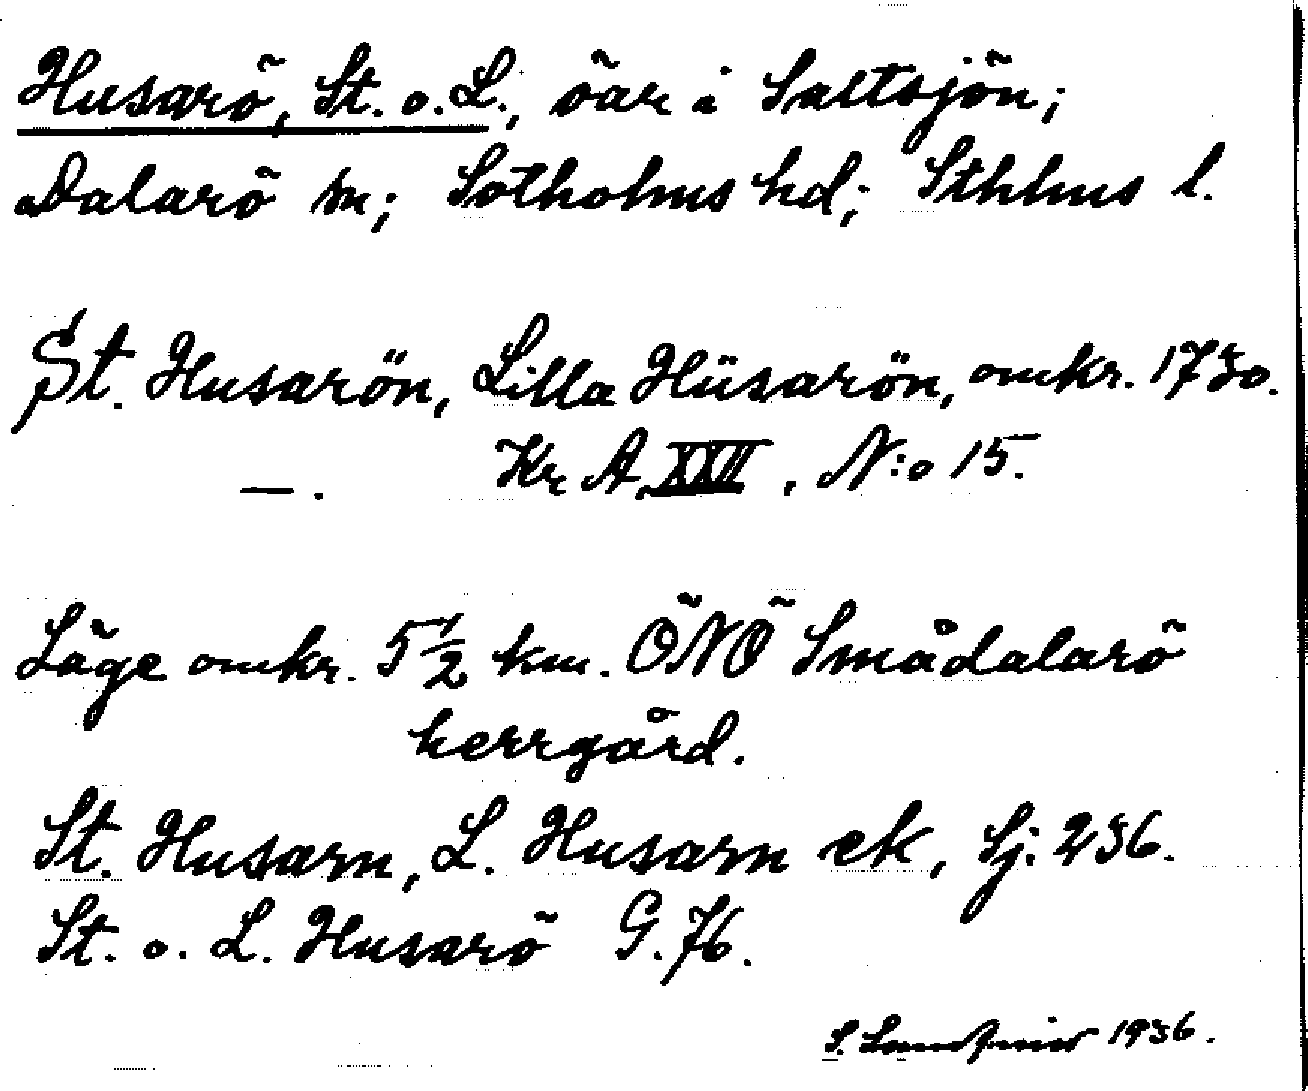 Husarö, St. o. L., öar i Saltsjön;
Dalarö sn; Sotholms hd; Sthlms l.
St. Husarön, Lilla Hüsarön, omkr. 1730.
—. Kr A, XXVI, N:o 15.
Läge omkr. 5 1/2 km. ÖNÖ Smådalarö
herrgård.
St. Husarn, L. Husarn ek, Sj: 236.
St. o. L. Husarö G. 76.
S. 1936.